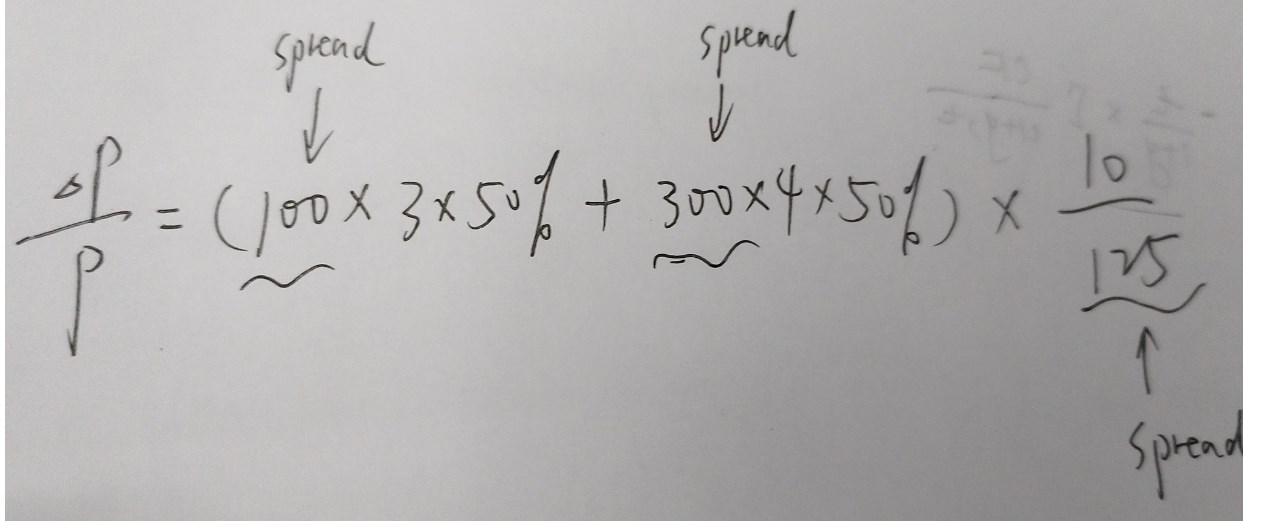 spread spread
ΔP/P = (100 × 3 × 50% + 300 × 4 × 50%) × 10/125
spread